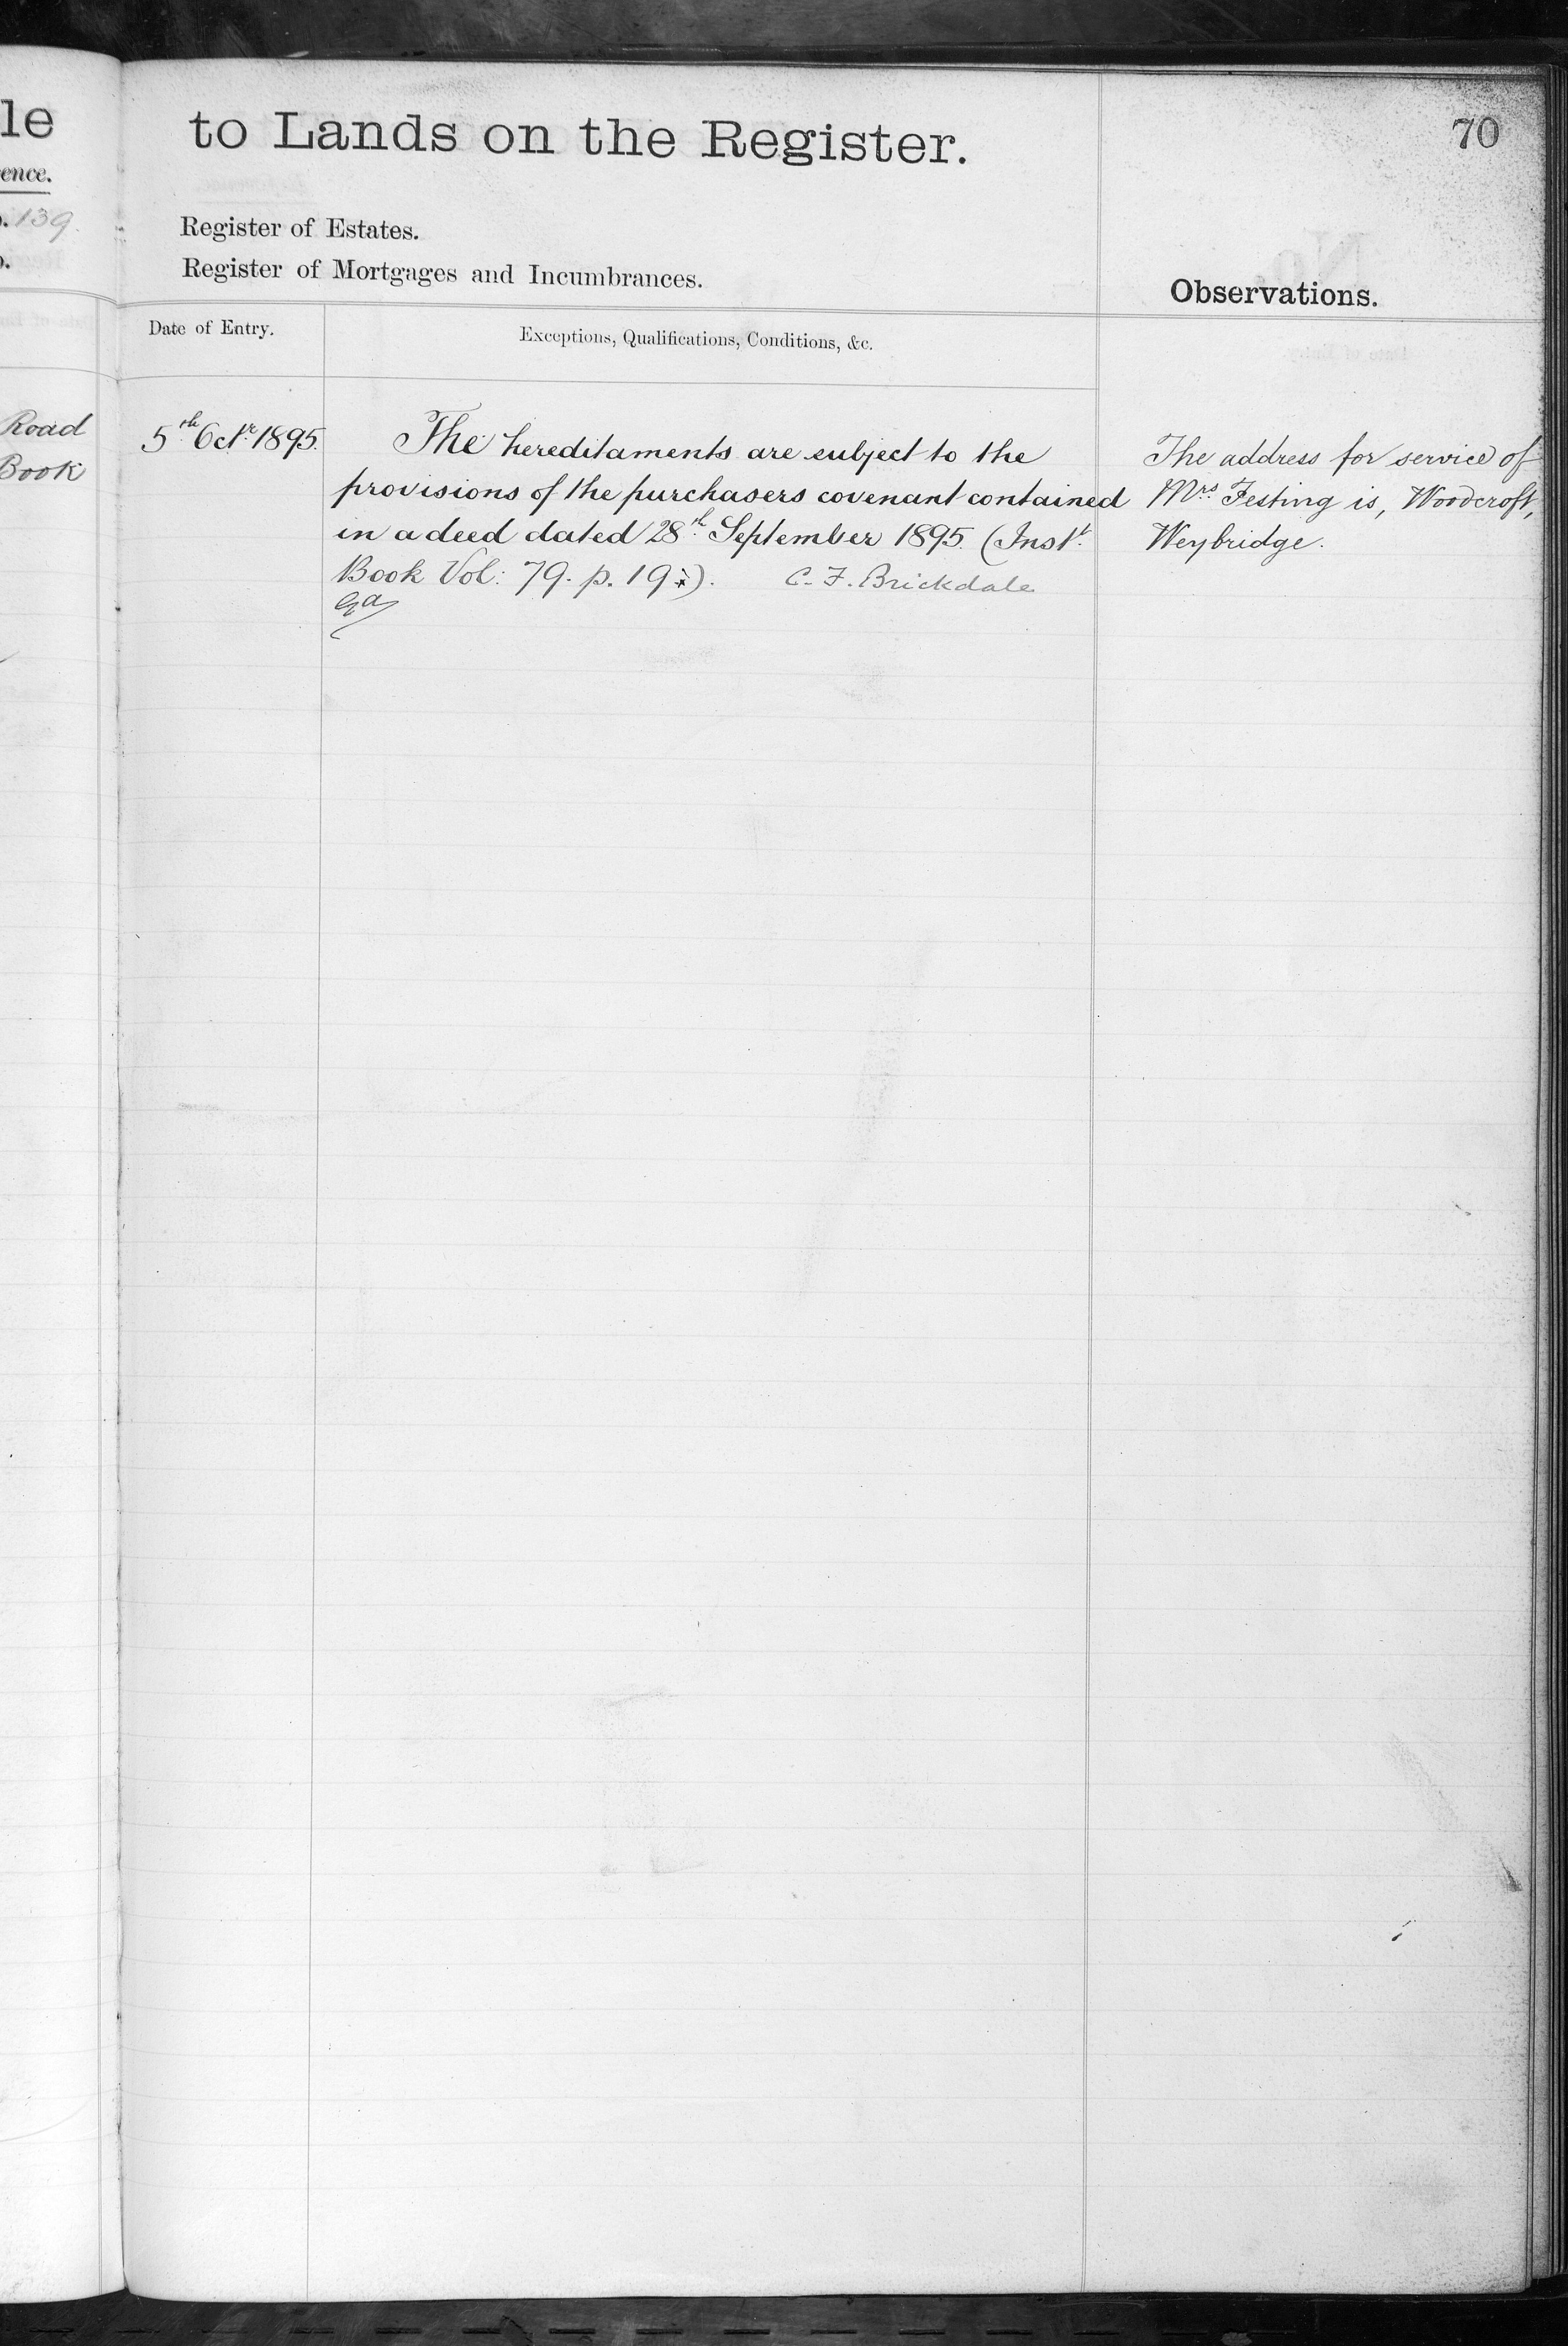 le
ence.
. 139.
.
Road
Book
to Lands on the Register.
70
Register of Estates.
Register of Mortgages and Incumbrances.
Observations.
Date of Entry.
Exceptions, Qualifications, Conditions, &c.
5th Octr 1895.
The hereditaments are subject to the
provisions of the purchasers covenant contained
in a deed dated 28th September 1895. (Instt
Book Vol: 79. p. 19 ). C. F. Brickdale
The address for service of
Mrs Festing is, Woodcroft,
Weybridge.